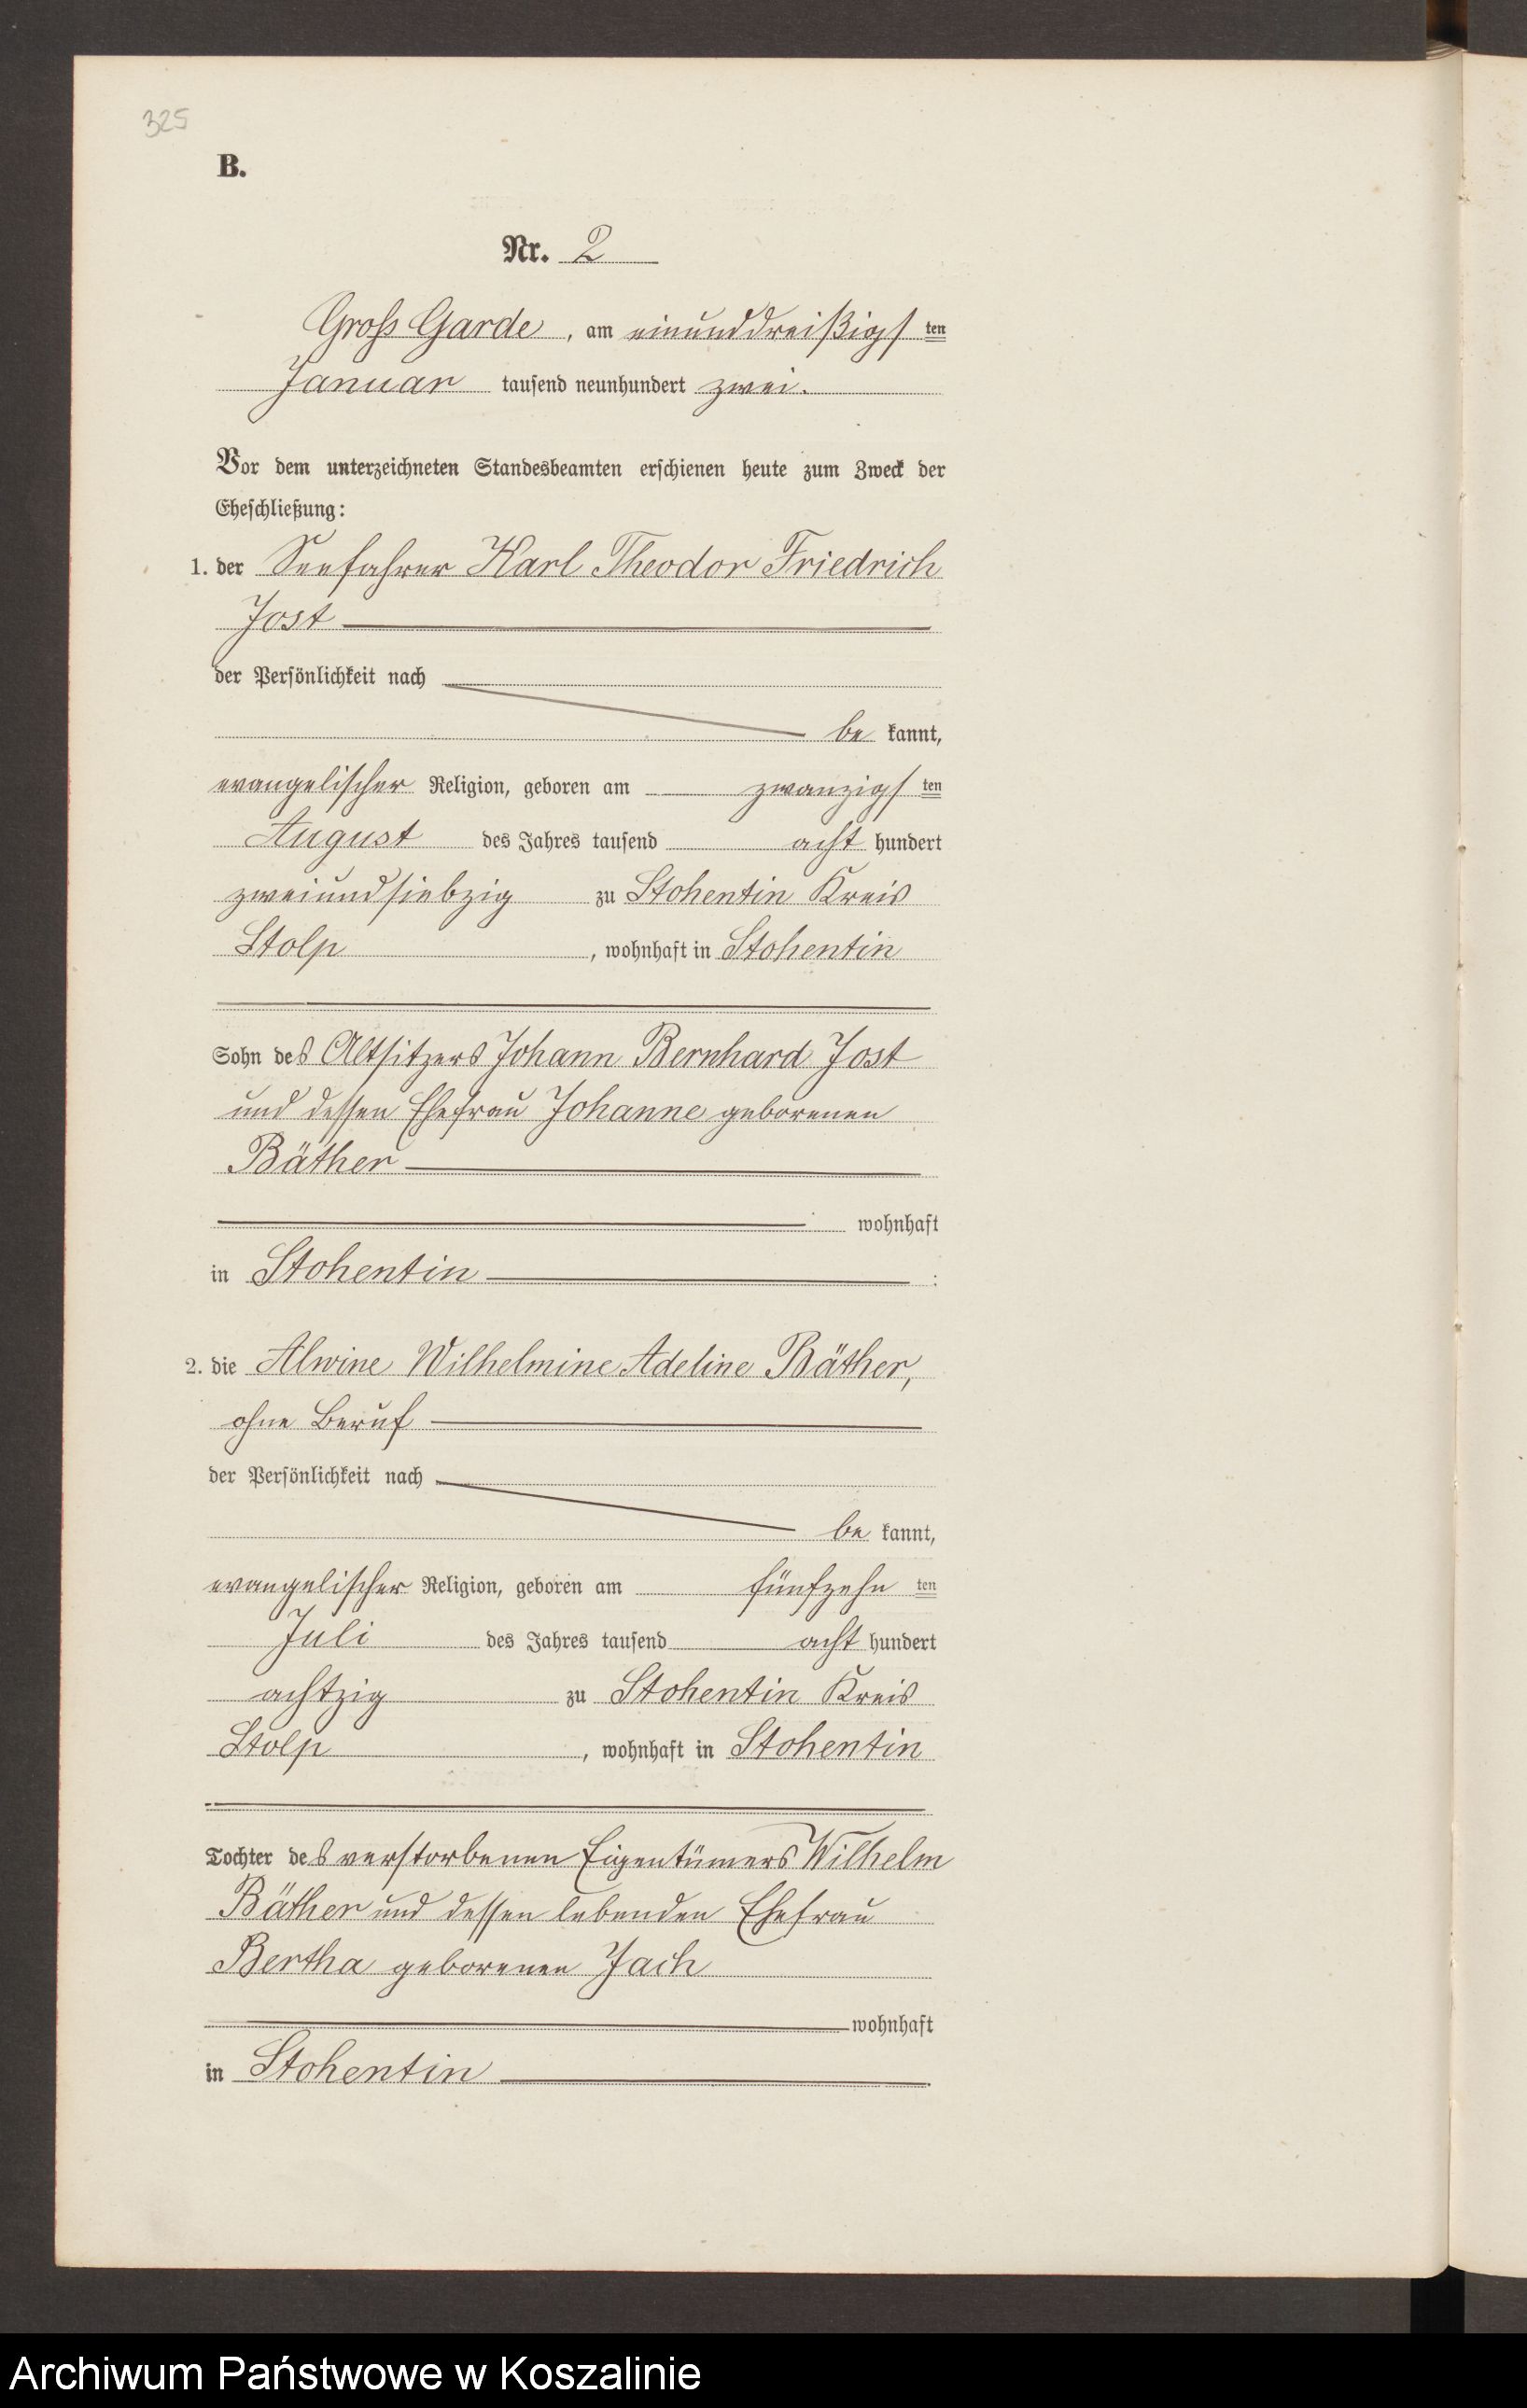 325
B.
Nr. 2
Gross Garde, am einunddreißigsten
Januar tausend neunhundert zwei.
Vor dem unterzeichneten Standesbeamten erschienen heute zum Zweck der
Eheschließung:
1. der Seefahrer Karl Theodor Friedrich
Jost
der Persönlichkeit nach
be kannt,
evangelischer Religion, geboren am zwanzigsten
August des Jahres tausend acht hundert
zweiundsiebzig zu Stohentin Kreis
Stolp, wohnhaft in Stohentin
Sohn des Altsitzers Johann Bernhard Jost
und dessen Ehefrau Johanne geborenen
Bäther
wohnhaft
in Stohentin :
2. die Alwine Wilhelmine Adeline Bäther,
ohne Beruf
der Persönlichkeit nach
be kannt,
evangelischer Religion, geboren am fünfzehnten
Juli des Jahres tausend acht hundert
achtzig zu Stohentin Kreis
Stolp, wohnhaft in Stohentin
Tochter des verstorbenen Eigentümers Wilhelm
Bäther und dessen lebenden Ehefrau
Bertha geborenen Jach
wohnhaft
in Stohentin
Archiwum Państwowe w Koszalinie